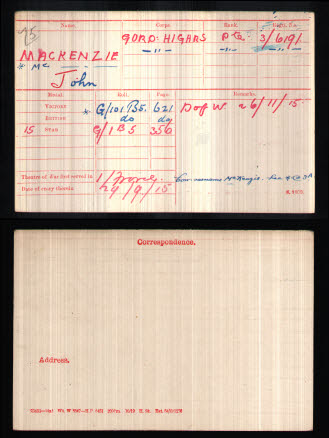 Name. Corps. Rank. Regtl. No.
MACKENZIE GORD: HIGHRS Pte 3/6191
* Mc — " — — " — — " — — " —
John
Medal. Roll. Page. Remarks.
VICTORY * G/101 B5. 621 D of W. 26/11/15.
BRITISH do do
15 STAR G/1 B 5 356
Theatre of War first served in 1/France
Date of entry therein 24/9/15
Correspondence.
Address.